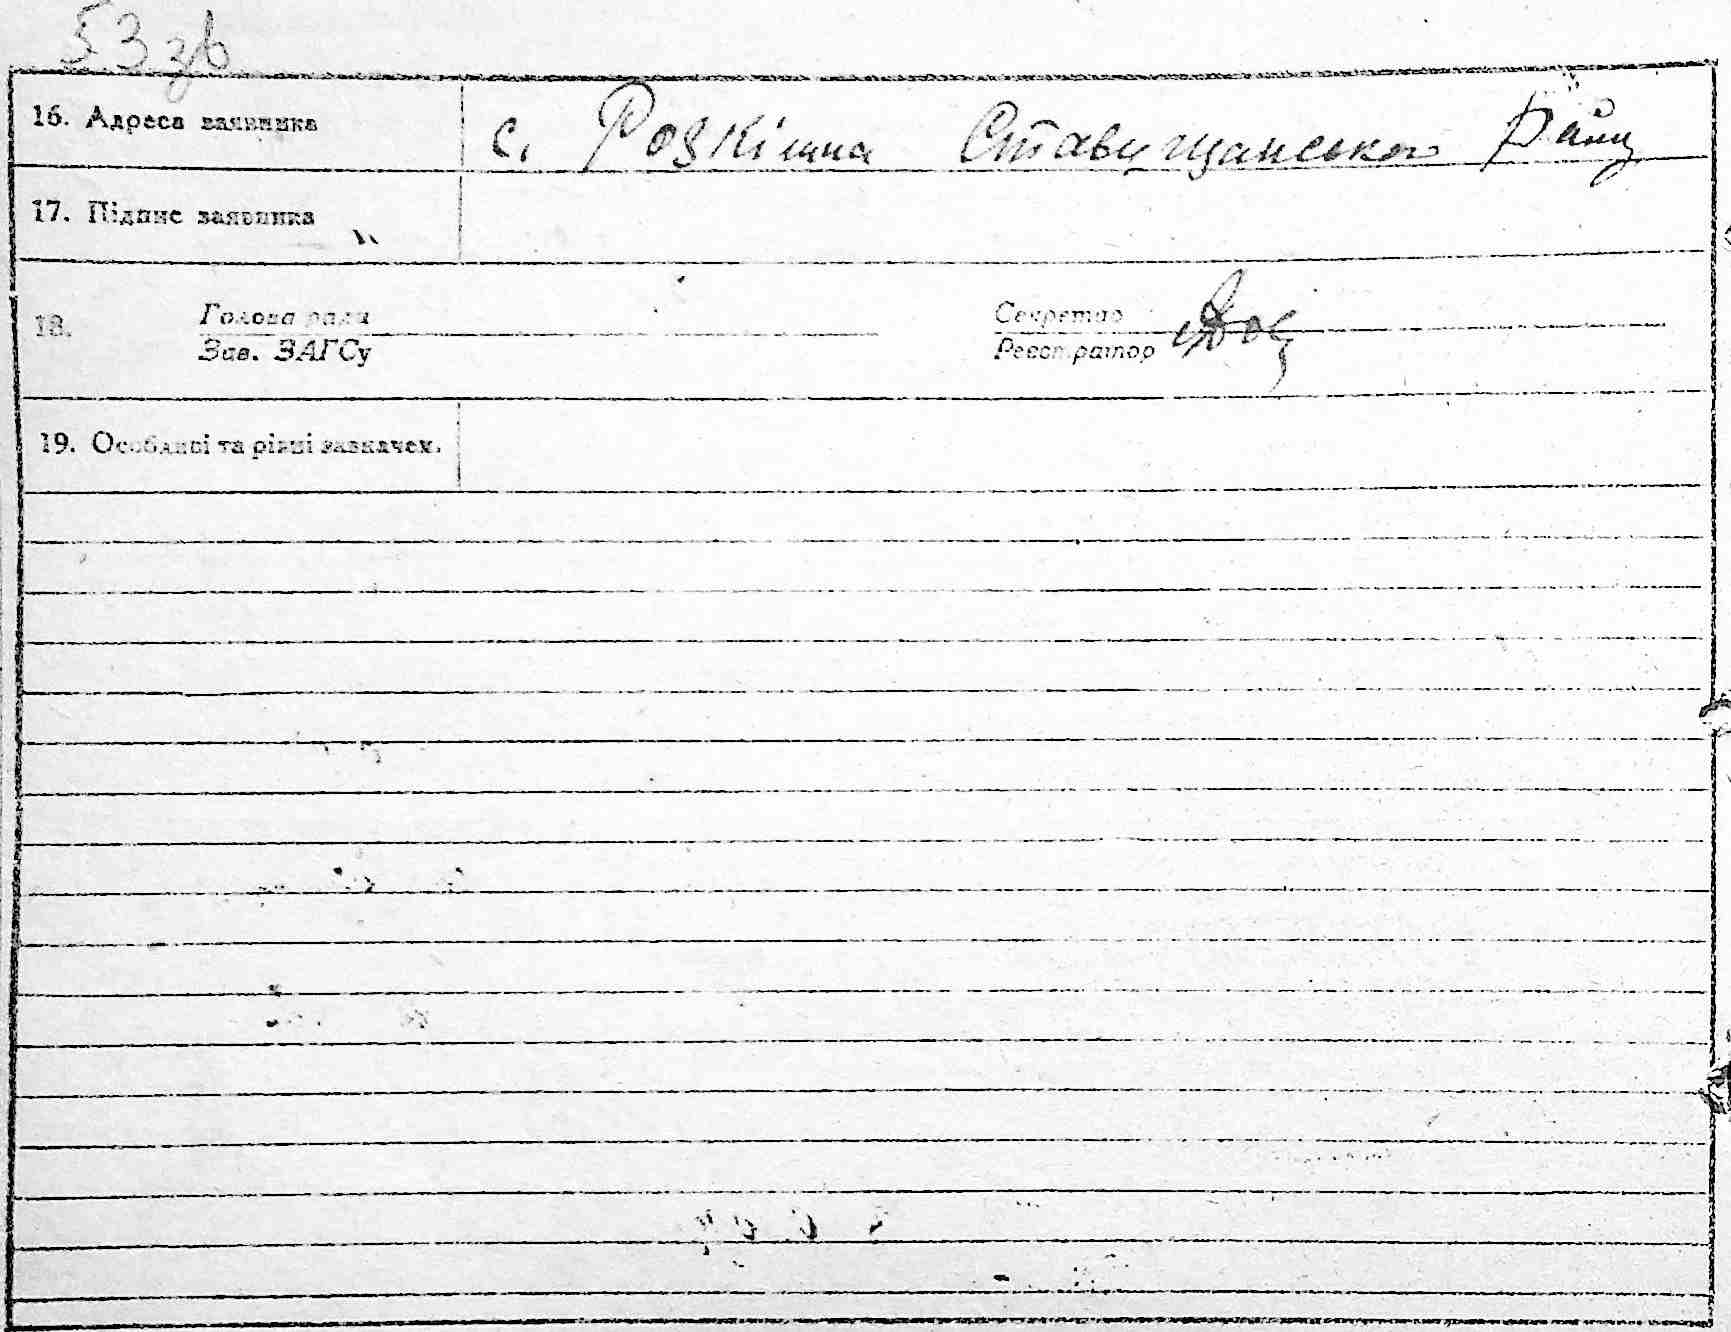 53 зв
16. Адреса заявника с. Розкішна Ставищанського Району
17. Підпис заявника
18. Голова ради Секретар
Зав. ЗАГСу Реєстратор
19. Особливі та різні зазначен.